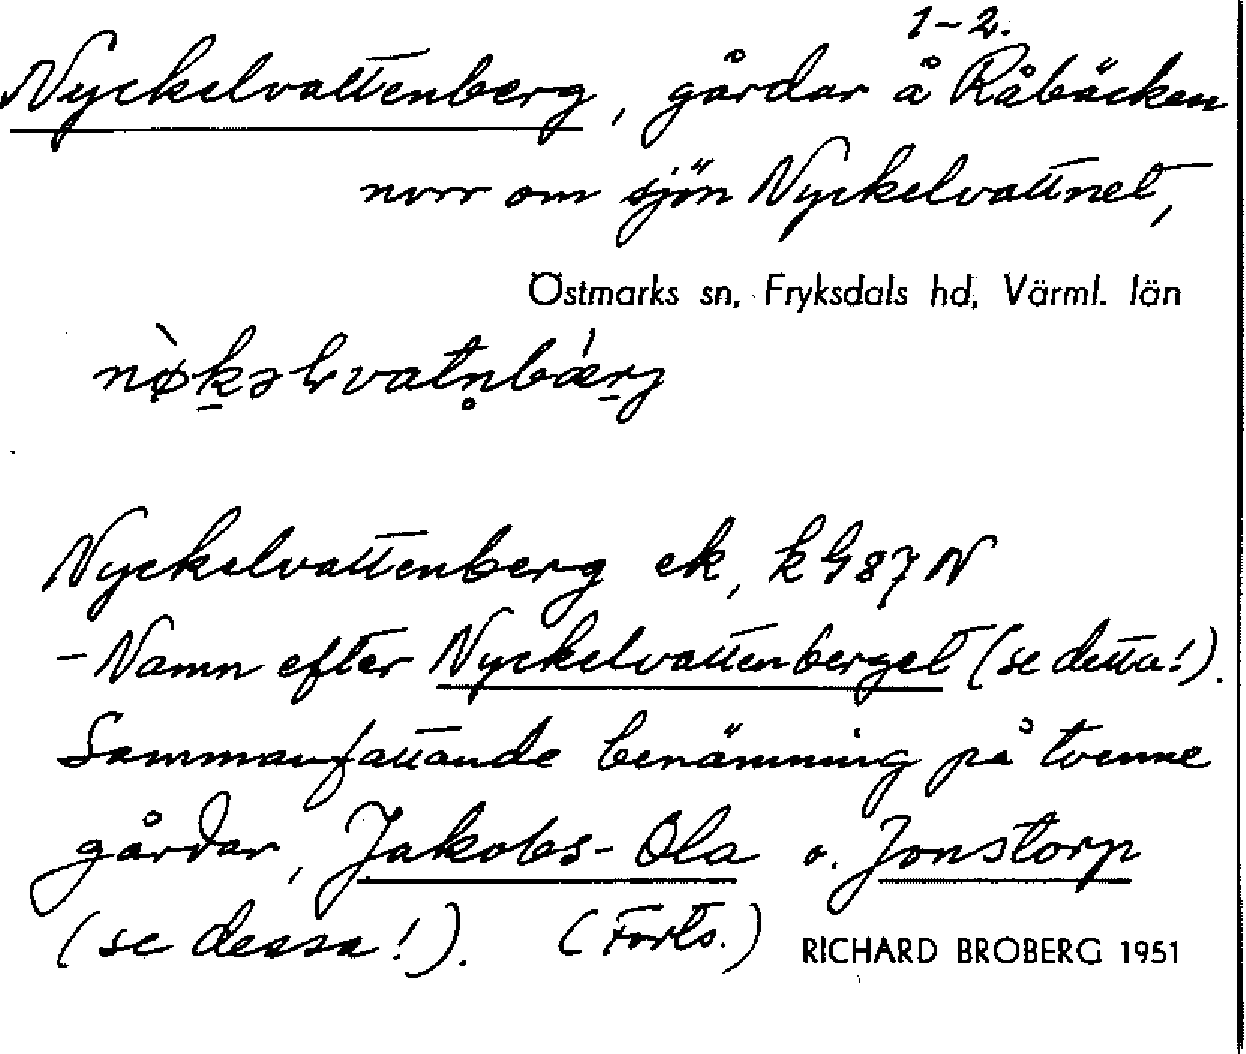 1-2.
Nyckelvattenberg, gårdar å Råbäcken
norr om sjön Nyckelvattnet,
Östmarks sn, Fryksdals hd, Värml. län
Nyckelvattenberg ek, k G 87 N
- Namn efter Nyckelvattenberget (se detta!).
Sammanfattande benämning på tvenne
gårdar, Jakobs-Ola o. Jonstorp
(se dessa!). (Forts.)
RICHARD BROBERG 1951